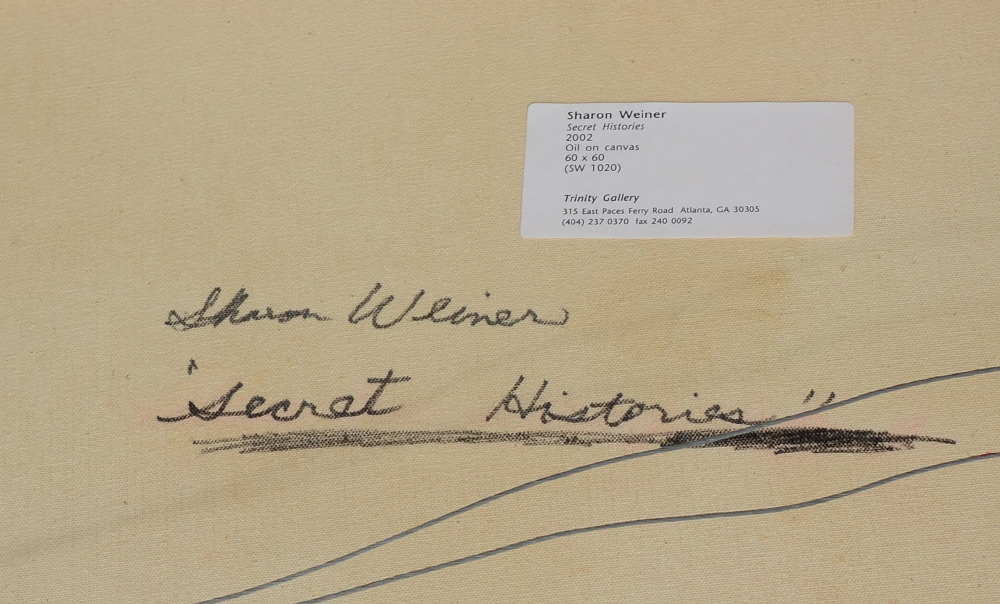 Sharon Weiner
Secret Histories
2002
Oil on canvas
60 x 60
(SW 1020)
Trinity Gallery
315 East Paces Ferry Road Atlanta, GA 30305
(404) 237 0370 fax 240 0092
Sharon Weiner
'Secret Histories"